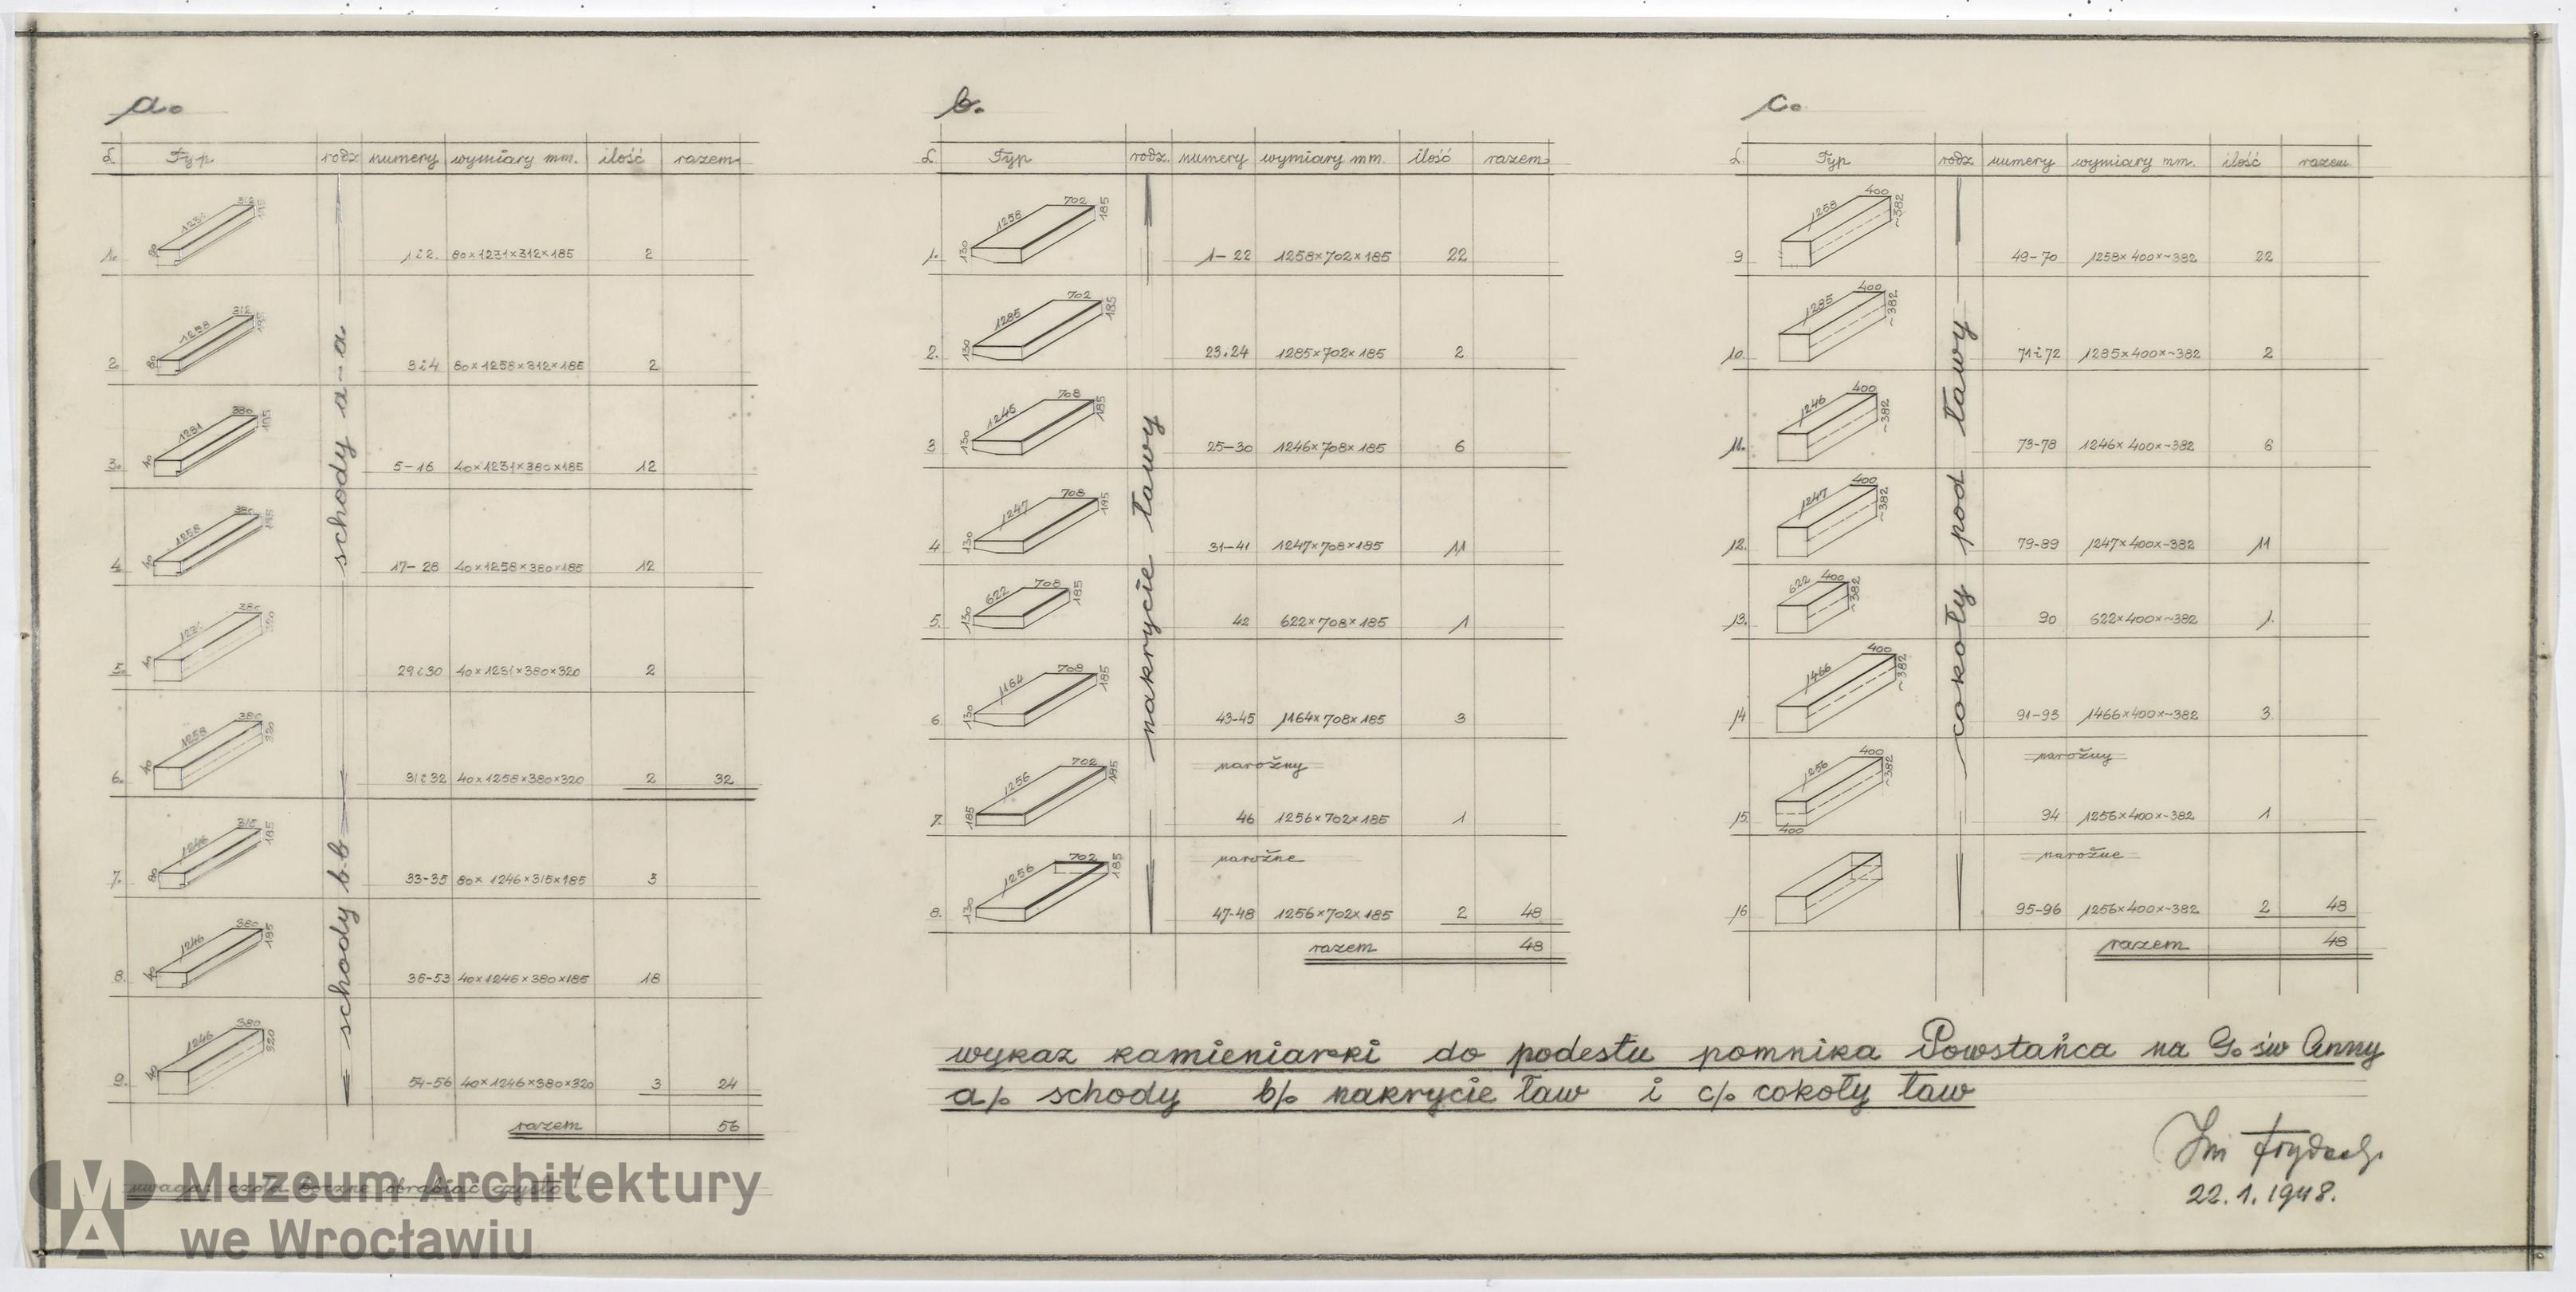 a.
L. Typ rodz numery wymiary mm. ilość razem
312
1231
185
80
1. 1 i 2. 80×1231×312×185 2
312
1258
185
80
2. 3 i 4 80×1258×312×185 2
380
1231
185
40
3. 5-16 40×1231×380×185 12
380
1258
185
40
4. 17-28 40×1258×380×185 12
380
1231
320
40
5. 29 i 30 40×1231×380×320 2
380
1258
320
40
6. 31 i 32 40×1258×380×320 2 32
schody a-a
315
1246
185
80
7. 33-35 80×1246×315×185 3
380
1246
185
40
8. 36-53 40×1246×380×185 18
380
1246
320
40
9. 54-56 40×1246×380×320 3 24
schody b-b
razem 56
uwaga: czoła boczne obrabiać czysto!
b.
L. Typ rodz. numery wymiary mm. ilość razem
702
1258
185
130
1. 1-22 1258×702×185 22
702
1285
185
130
2. 23i24 1285×702×185 2
708
1245
185
130
3 25-30 1246×708×185 6
708
1247
185
130
4 31-41 1247×708×185 11
708
622
185
130
5. 42 622×708×185 1
708
1164
185
130
6. 43-45 1164×708×185 3
702
1256
185
185
narożny
7. 46 1256×702×185 1
702
1256
185
130
narożne
8. 47-48 1256×702×185 2 48
nakrycie ławy
razem 48
c.
L. Typ rodz numery wymiary mm. ilość razem
400
1258
~382
9 49-70 1258×400×~382 22
400
1285
~382
10. 71i72 1285×400×~382 2
400
1246
~382
11. 73-78 1246×400×~382 6
400
1247
~382
12. 79-89 1247×400×~382 11
622 400
~382
13. 90 622×400×~382 1.
400
1466
~382
14 91-93 1466×400×~382 3
400
1256
~382
400
narożny
15. 94 1256×400×~382 1
narożne
16 95-96 1256×400×~382 2 48
cokoły pod ławy
razem 48
wykaz kamieniarki do podestu pomnika Powstańca na G. św Anny
a/. schody b/. nakrycie ław i c/. cokoły ław
22.1.1948.
Muzeum Architektury
we Wrocławiu
MA